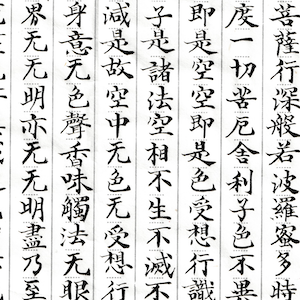 菩薩行深般若波羅蜜多時
度一切苦厄舍利子色不異
即是空空即是色受想行識
子是諸法空相不生不滅不
減是故空中无色无受想行
身意无色聲香味觸法无眼
界无明亦无无明盡乃至